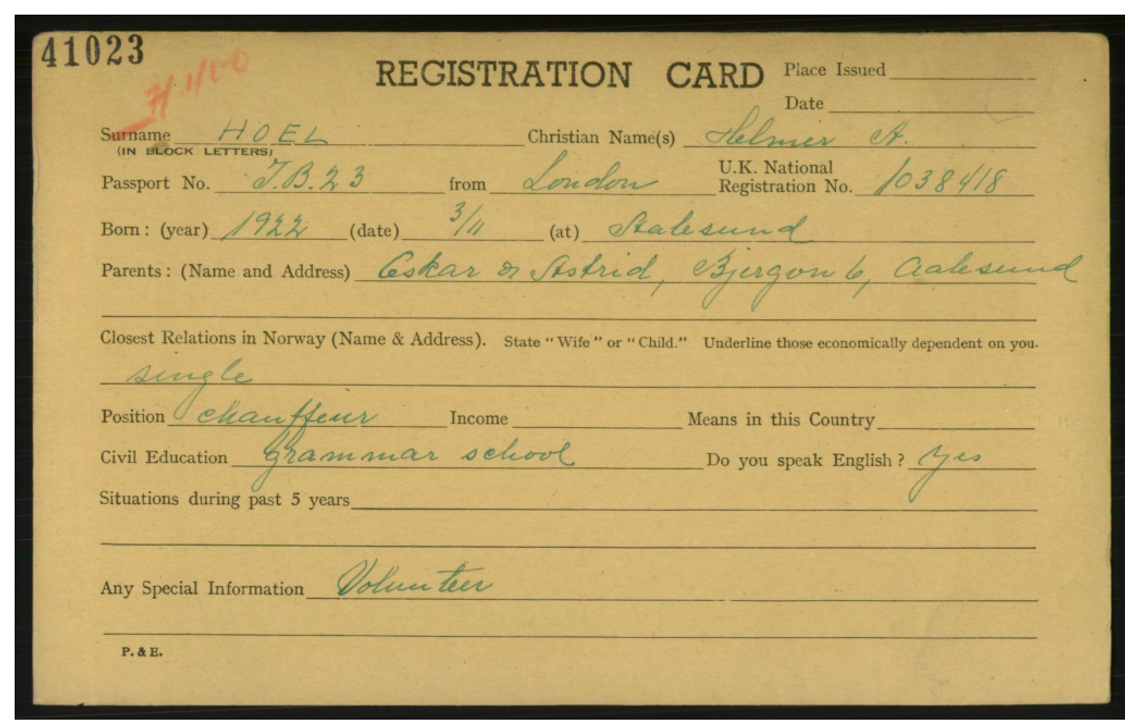 41023
REGISTRATION CARD Place Issued
Date
Surname HOEL Christian Name(s) Helmer A.
(IN BLOCK LETTERS)
Passport No. J.B.23 from London U.K. National Registration No. 1038418
Born: (year) 1922 (date) 3/11 (at) Aalesund
Parents: (Name and Address) Oskar & Astrid, Bjergvn 6, Aalesund
Closest Relations in Norway (Name & Address). State "Wife" or "Child." Underline those economically dependent on you.
single
Position chauffeur Income Means in this Country
Civil Education grammar school Do you speak English? Yes
Situations during past 5 years
Any Special Information Volunteer
P. & E.